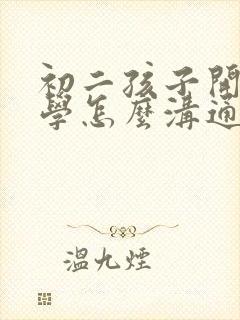 初二孩子鬧
學怎麼溝通
溫九煙